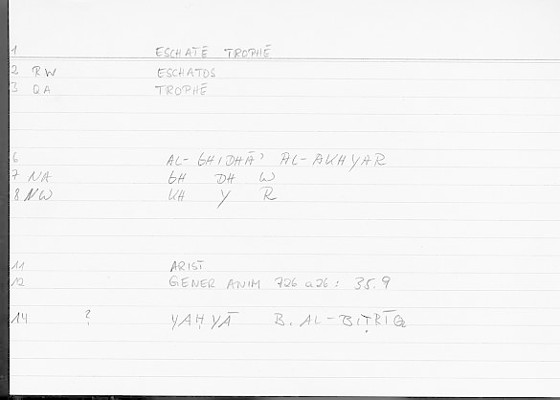 1 ESCHATĒ TROPHĒ
2 RW ESCHATOS
3 QA TROPHĒ
6 AL-GHIDHĀ' AL-AKHYAR
7 NA GH DH W
8 NW KH Y R
11 ARIST
12 GENER ANIM 726 a 26 : 35.9
14 ? YAḤYĀ B. AL-BIṬRĪQ